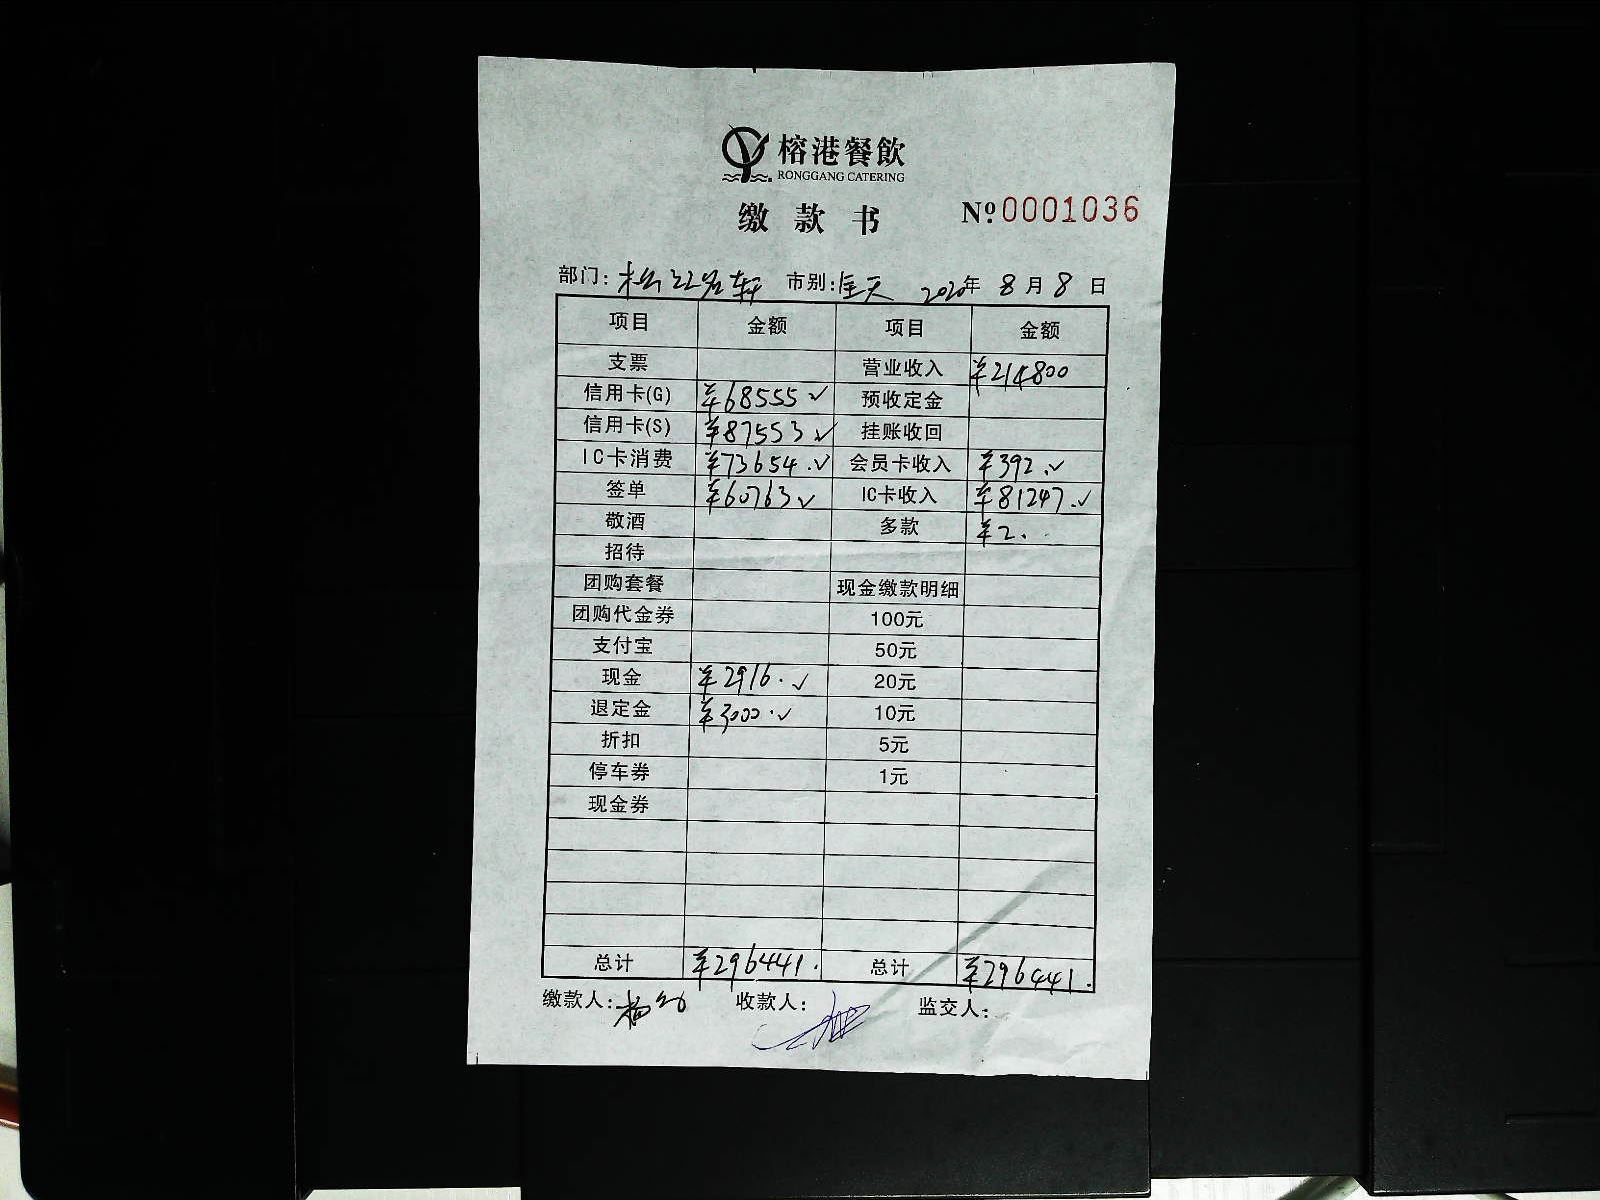 榕港餐飲
RONGGANG CATERING
缴款书 Nº 0001036
部门: 松江名轩 市别: 全天 2020年 8月 8日
项目 金额 项目 金额
支票 营业收入 ¥214800
信用卡(G) ¥68555 ✓ 预收定金
信用卡(S) ¥87553 ✓ 挂账收回
IC卡消费 ¥73654. ✓ 会员卡收入 ¥392. ✓
签单 ¥60763 ✓ IC卡收入 ¥81247. ✓
敬酒 多款 ¥2.
招待
团购套餐 现金缴款明细
团购代金券 100元
支付宝 50元
现金 ¥2916. ✓ 20元
退定金 ¥3000. ✓ 10元
折扣 5元
停车券 1元
现金券
总计 ¥296441. 总计 ¥296441.
缴款人: 收款人: 监交人: